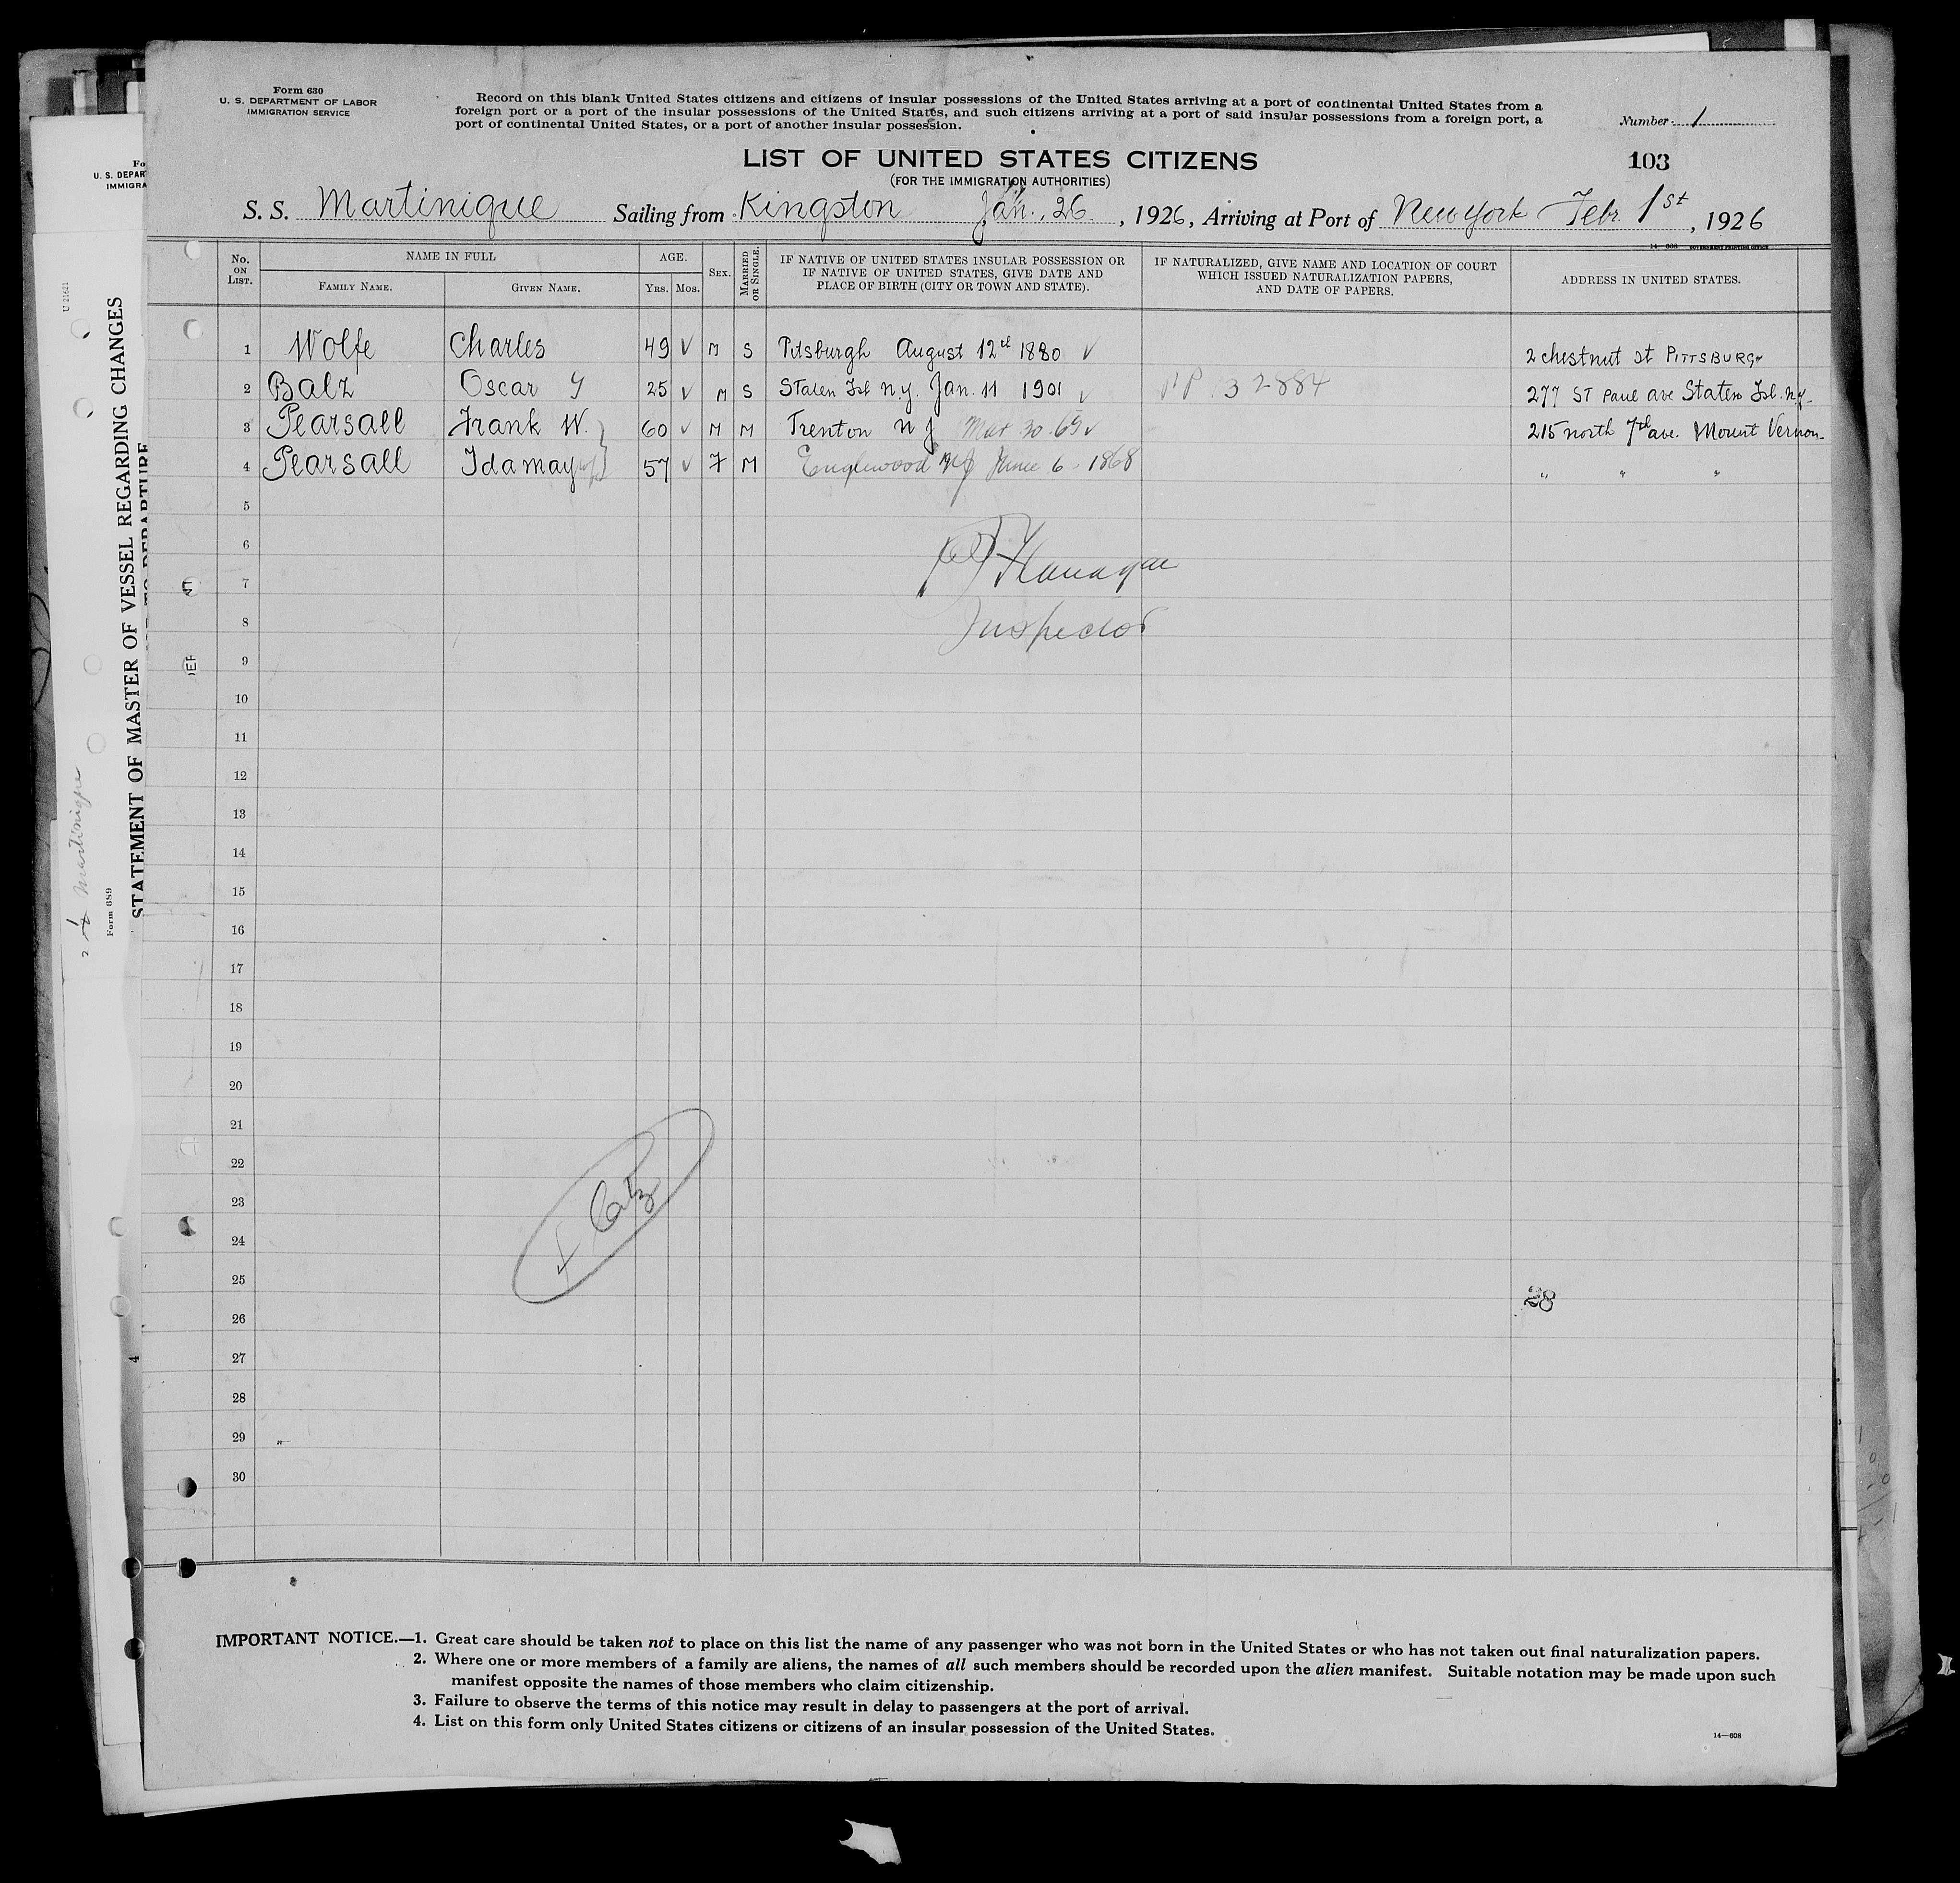 Form 630
U. S. DEPARTMENT OF LABOR
IMMIGRATION SERVICE
Record on this blank United States citizens and citizens of insular possessions of the United States arriving at a port of continental United States from a
foreign port or a port of the insular possessions of the United States, and such citizens arriving at a port of said insular possessions from a foreign port, a
port of continental United States, or a port of another insular possession.
Number 1
LIST OF UNITED STATES CITIZENS
103
(FOR THE IMMIGRATION AUTHORITIES)
S. S. Martinique Sailing from Kingston Jan. 26, 1926, Arriving at Port of New York Febr. 1st, 1926
14—608 GOVERNMENT PRINTING OFFICE
No. ON LIST. NAME IN FULL FAMILY NAME. GIVEN NAME. AGE. YRS. MOS. SEX. MARRIED OR SINGLE. IF NATIVE OF UNITED STATES INSULAR POSSESSION OR IF NATIVE OF UNITED STATES, GIVE DATE AND PLACE OF BIRTH (CITY OR TOWN AND STATE). IF NATURALIZED, GIVE NAME AND LOCATION OF COURT WHICH ISSUED NATURALIZATION PAPERS, AND DATE OF PAPERS. ADDRESS IN UNITED STATES.
1 Wolfe Charles 49 √ M S Pitsburgh August 12th 1880 √ 2 chestnut st PITTSBURG
2 Balz Oscar Y 25 √ M S Staten Isl N.Y. Jan. 11 1901 √ PP 32884 277 ST Paul ave Staten Isl. N.Y.
3 Pearsall Frank W. 60 √ M M Trenton N J Mar 30 - 65 √ 215 north 7th ave. Mount Vernon
4 Pearsall Idamay wf 57 √ F M Englewood NJ June 6 - 1868 " " "
5
6
7
Flanagan
8
Inspector
9
10
11
12
13
14
15
16
17
18
19
20
21
22
23
24
25
28
26
27
28
29
30
IMPORTANT NOTICE.—1. Great care should be taken not to place on this list the name of any passenger who was not born in the United States or who has not taken out final naturalization papers.
2. Where one or more members of a family are aliens, the names of all such members should be recorded upon the alien manifest. Suitable notation may be made upon such
manifest opposite the names of those members who claim citizenship.
3. Failure to observe the terms of this notice may result in delay to passengers at the port of arrival.
4. List on this form only United States citizens or citizens of an insular possession of the United States.
14—608
U. S. DEPAR
IMMIGRA
STATEMENT OF MASTER OF VESSEL REGARDING CHANGES
Form 689
Martinique